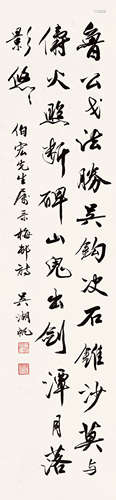 魯公戈法勝吳鉤決石錐沙莫與
儔火照斷碑山鬼出劍潭月落
影悠〻
伯宏先生屬录梅邨詩
吳湖帆